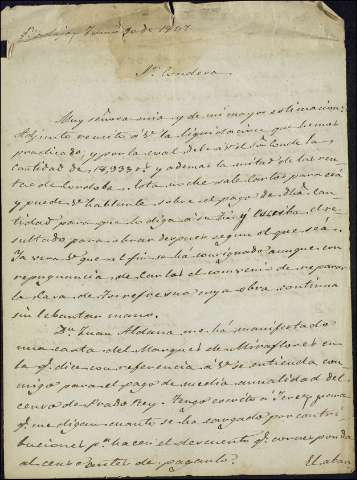 Sra. Condesa
Muy señora mia y de mi mayor estimacion:
Adjunto remito á Va. la liquidacion que hemos
practicado, y por la cual debe á Va. el Sr. Conde la
cantidad de 18,939 rs. y ademas la mitad de las ren-
tas de Cordoba. Esta noche sale Carlos para esa
y puede Va. hablarle sobre el pago de dha. can-
tidad para que lo diga a su tio y escriba el re-
sultado para obrar despues segun el que sea.
Ya vera Va. que al fin se ha consignado aunque con
repugnancia de Carlos el convenio de reparar
la casa de Torrefresno cuya obra continua
sin lebantar mano.
Dn. Juan Aldana me há manifestado
una carta del Marques de Miraflores en
la q. dice con referencia á Va. se entienda con-
migo para el pago de media anualidad del
censo de Prado Rey. Tengo escrito á Perez para
q. me digan cuanto se ha cargado por contri-
buciones pa. hacer el descuento q. corresponda
al censo antes de pagarlo.